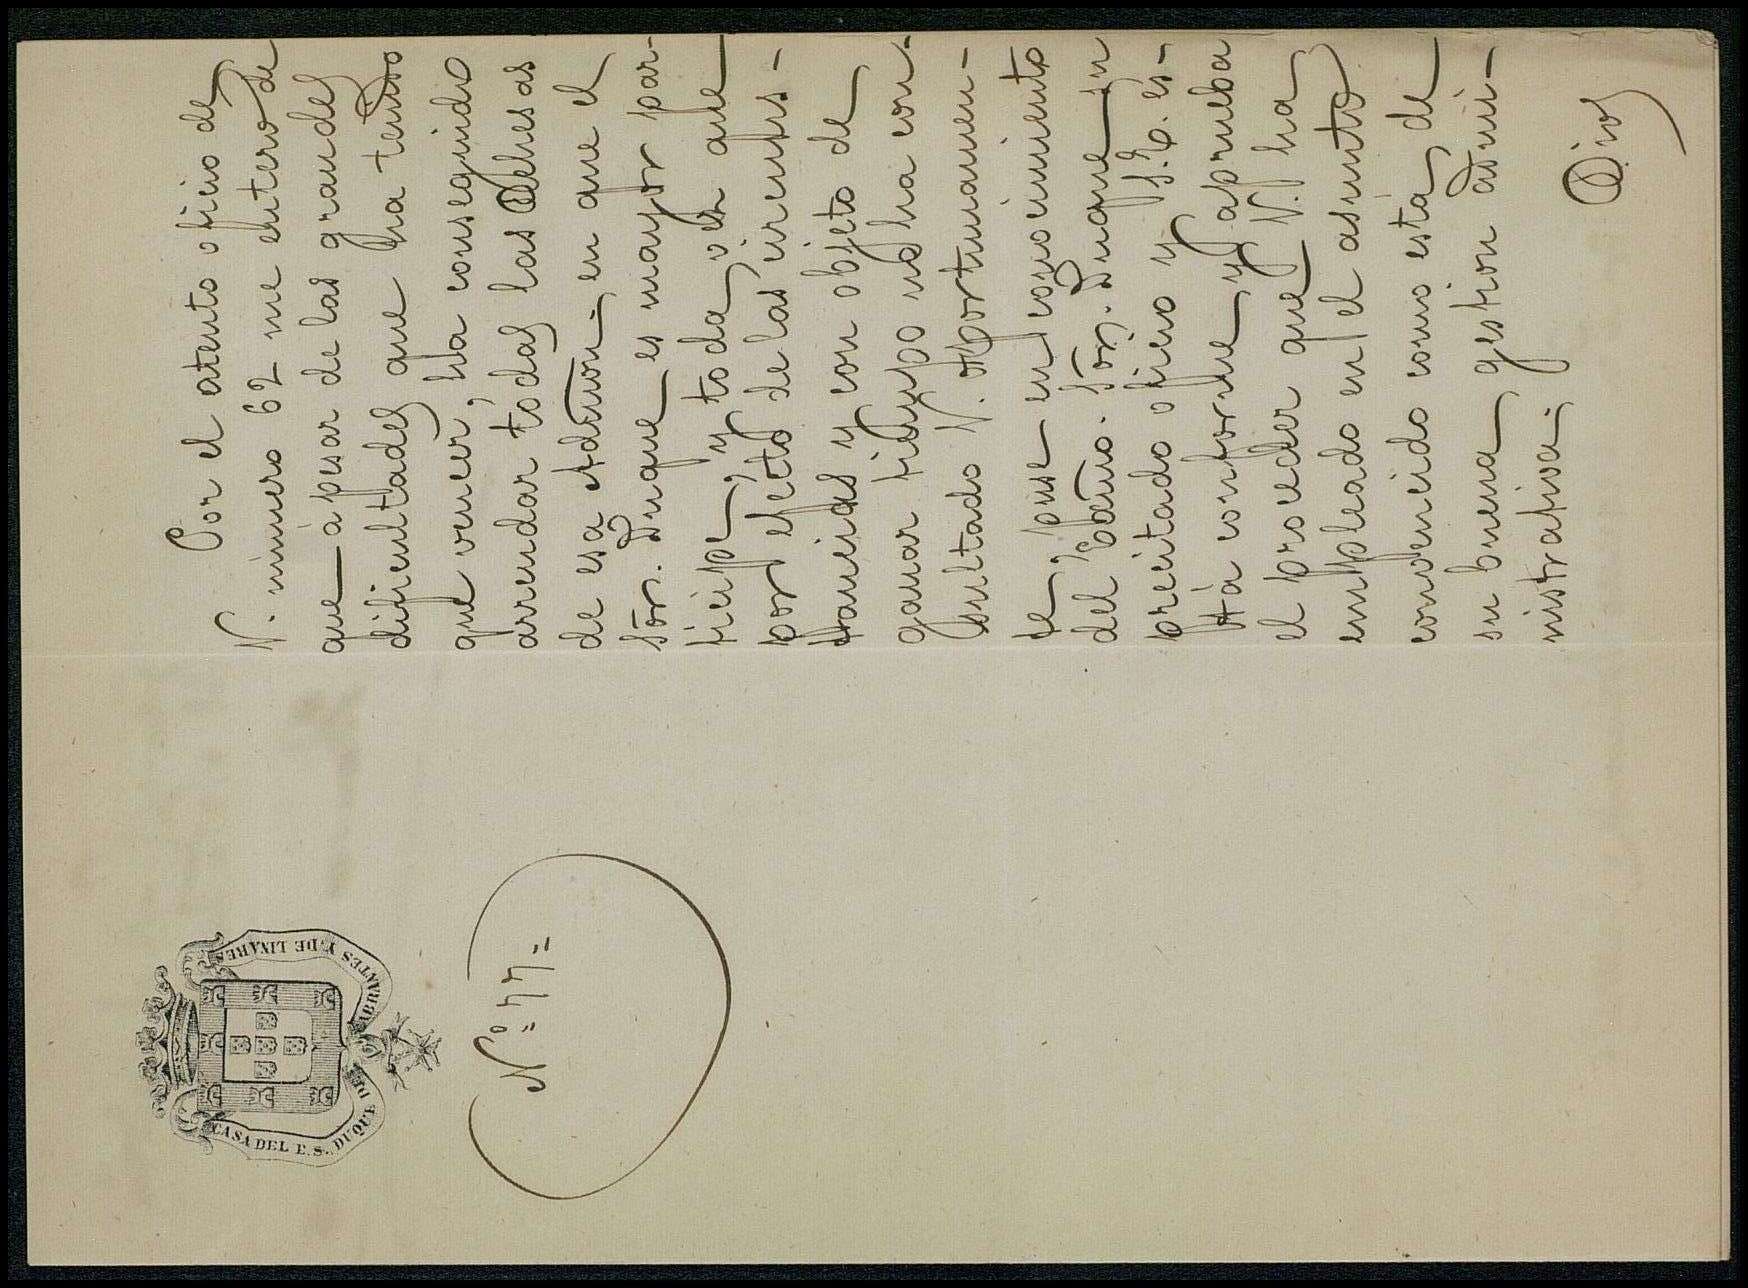 CASA DEL E. S. DUQUE DE ABRANTES Y DE LINARES
Nº=77=
Por el atento oficio de
V. número 62 me entero de
que à pesar de las grandes
dificultades que ha tenido
que vencer, ha conseguido
arrendar todas las dehesas
de esa Admon. en que el
Sōr. Duque es mayor par-
ticipe, y toda vez que
por efecto de las circuns-
tancias y con objeto de
ganar tiempo no ha con-
sultado V. oportunamen-
te, puse en conocimiento
del Excmo. Sōr. Duque su
precitado oficio y S.E. es-
tá conforme y aprueba
el proceder que V. ha
empleado en el asunto
convencido como está de
su buena gestion admi-
nistrativa.
Dios